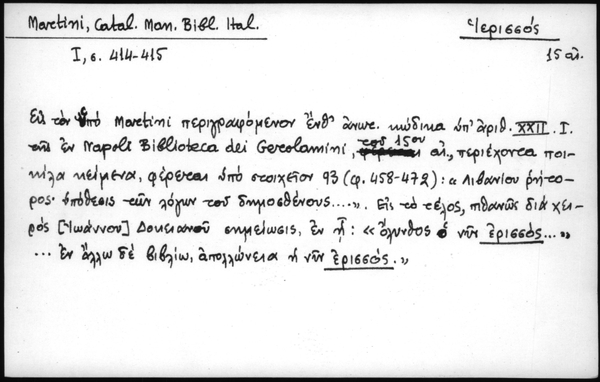 Martini, Catal. Man. Bibl. Ital.
Ἱερισσός
I, σ. 414-415
15 αἰ.
Εἰς τὸν ὑπὸ Martini περιγραφόμενον ἔνθ' ἄνωτ. κώδικα ὑπ' ἀριθ. XXII. I.
τῆς ἐν Napoli Biblioteca dei Gerolamini, τοῦ 15ου αἰ., περιέχοντα ποι-
κίλα κείμενα, φέρεται ὑπὸ στοιχεῖον 93 (φ. 458-472): «Λιβανίου ῥήτο-
ρος· ὑπόθεσις τῶν λόγων τοῦ Δημοσθένους....». Εἰς τὸ τέλος, πιθανῶς διὰ χει-
ρὸς [Ἰωάννου] Δοκειανοῦ σημείωσις, ἐν ᾗ: «ὄλυνθος ὁ νῦν ἐρισσός...»
... ἐν ἄλλω δὲ βιβλίω, ἀπολλώνεια ἡ νῦν ἐρισσός.»